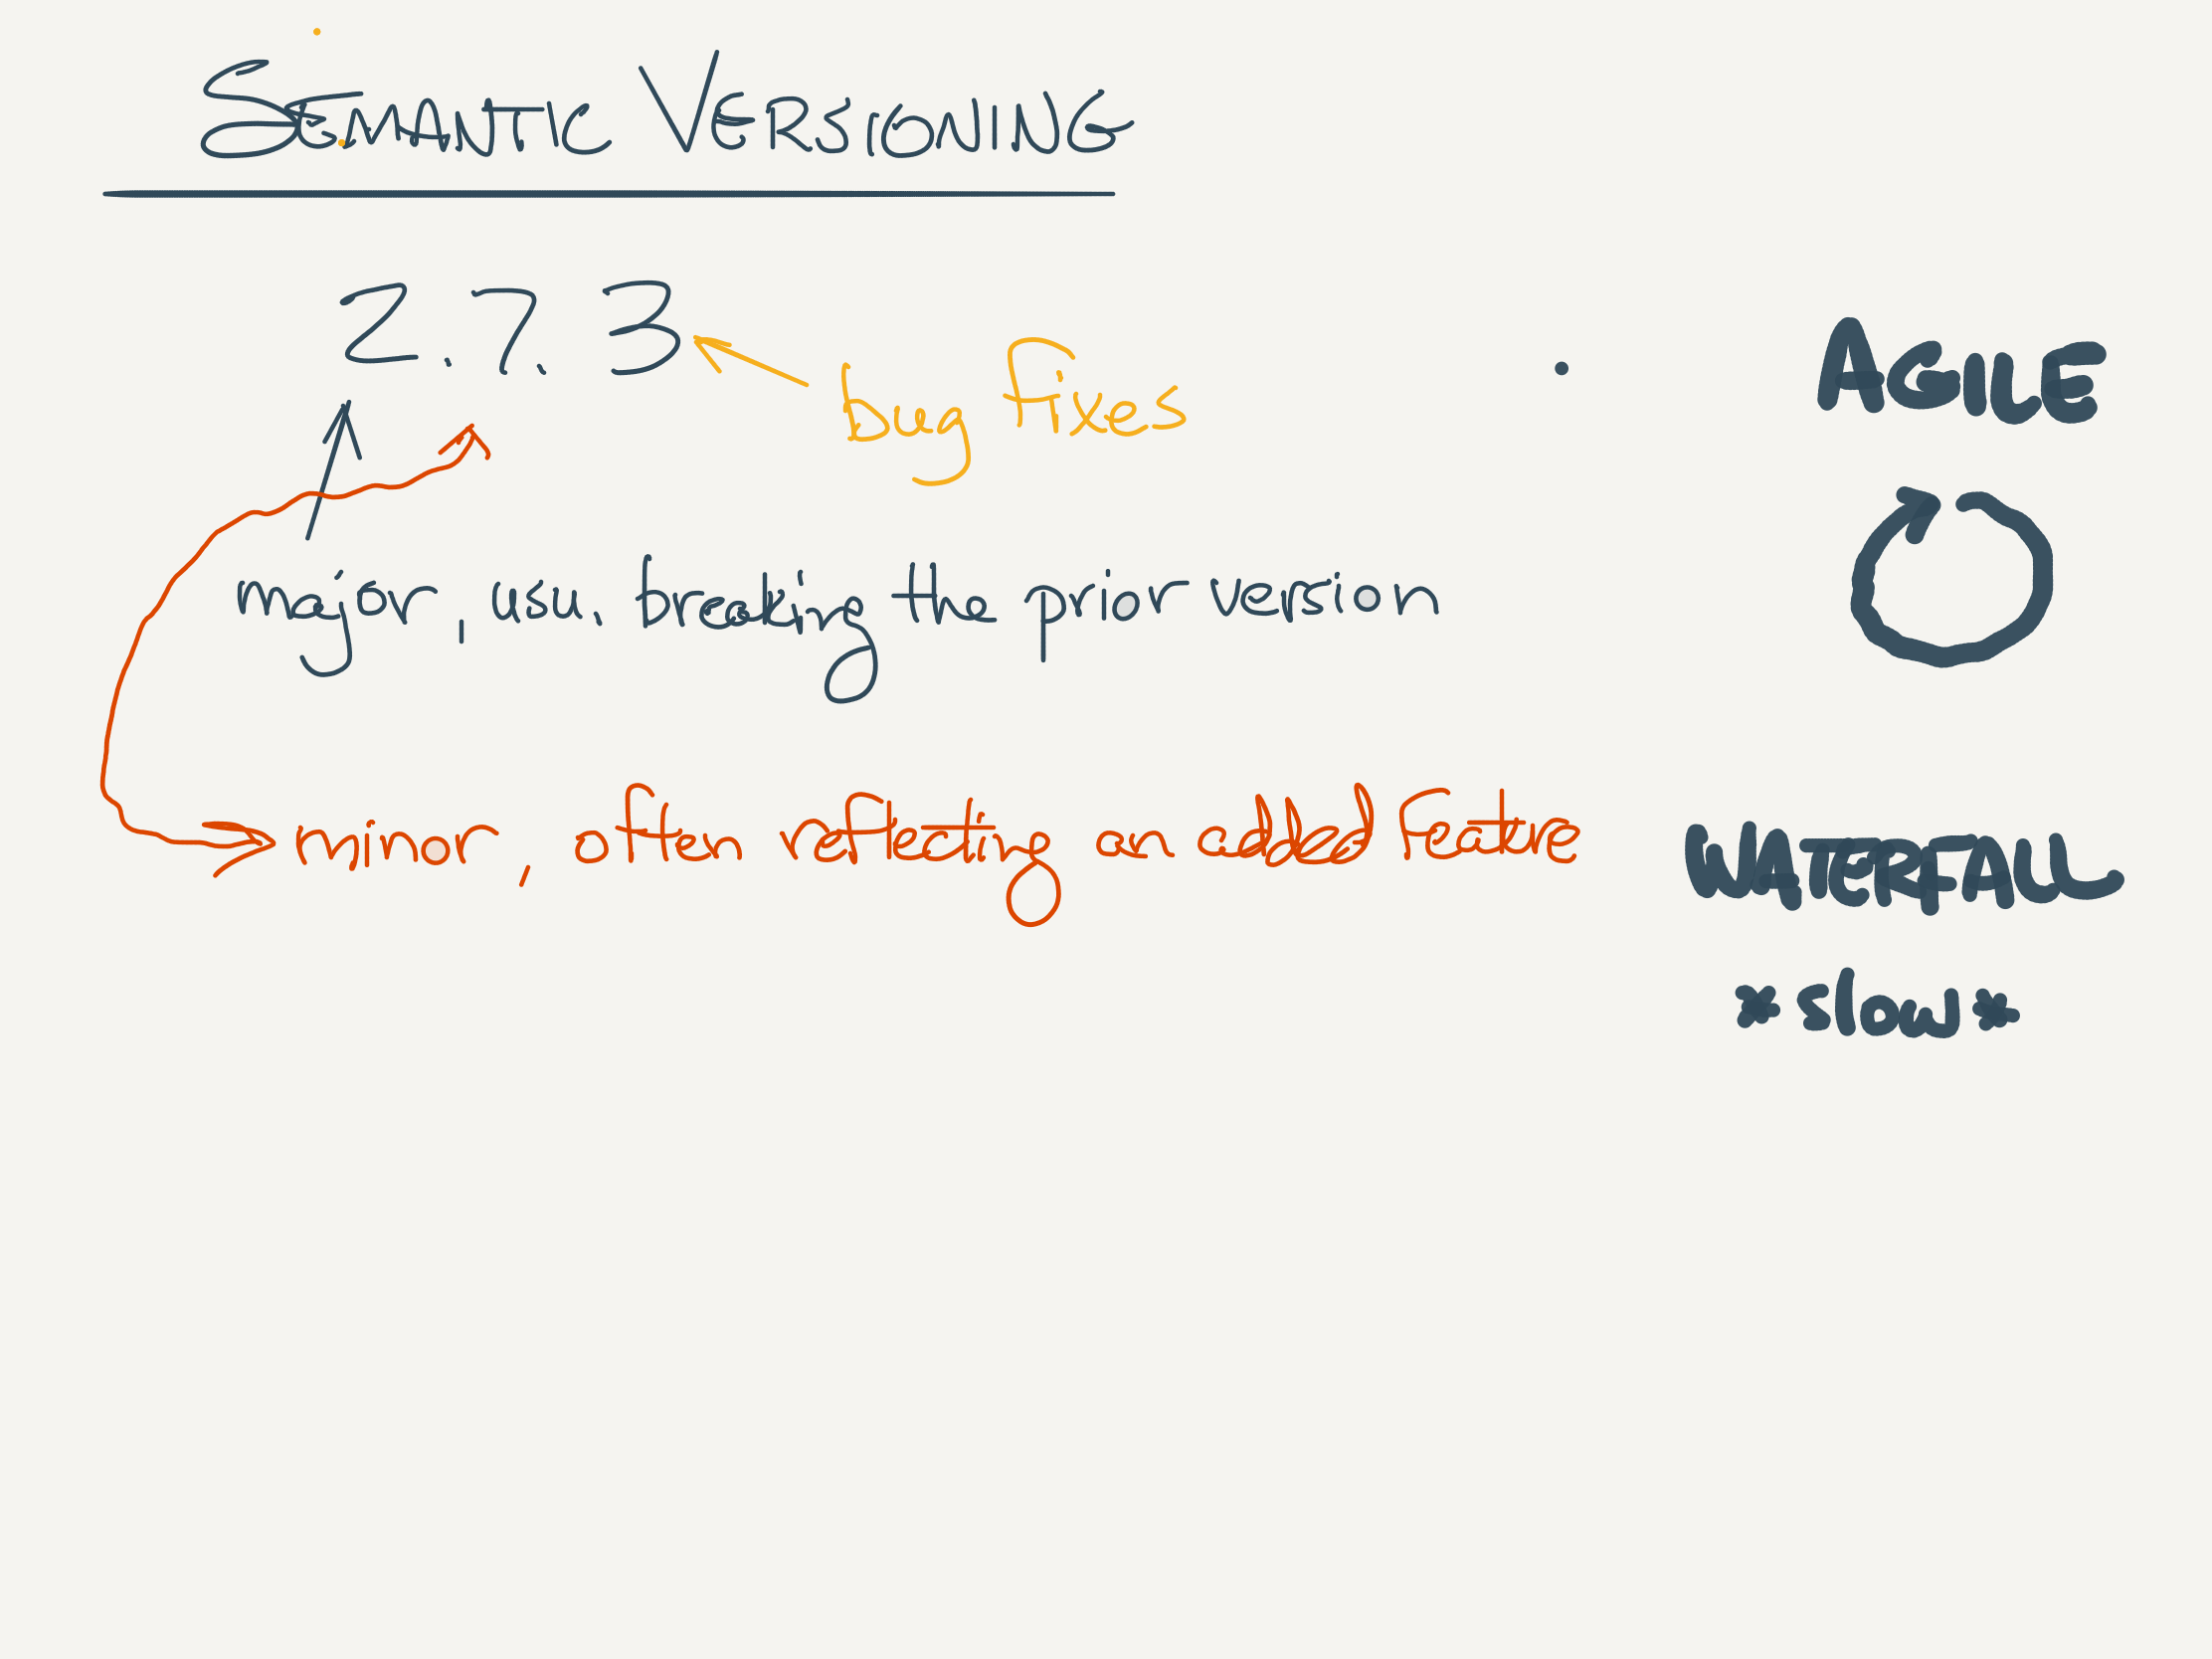 SEMANTIC VERSIONING
2.7.3
bug fixes
major, usu. breaking the prior version
minor, often reflecting an added feature
AGILE
WATERFALL
*slow*